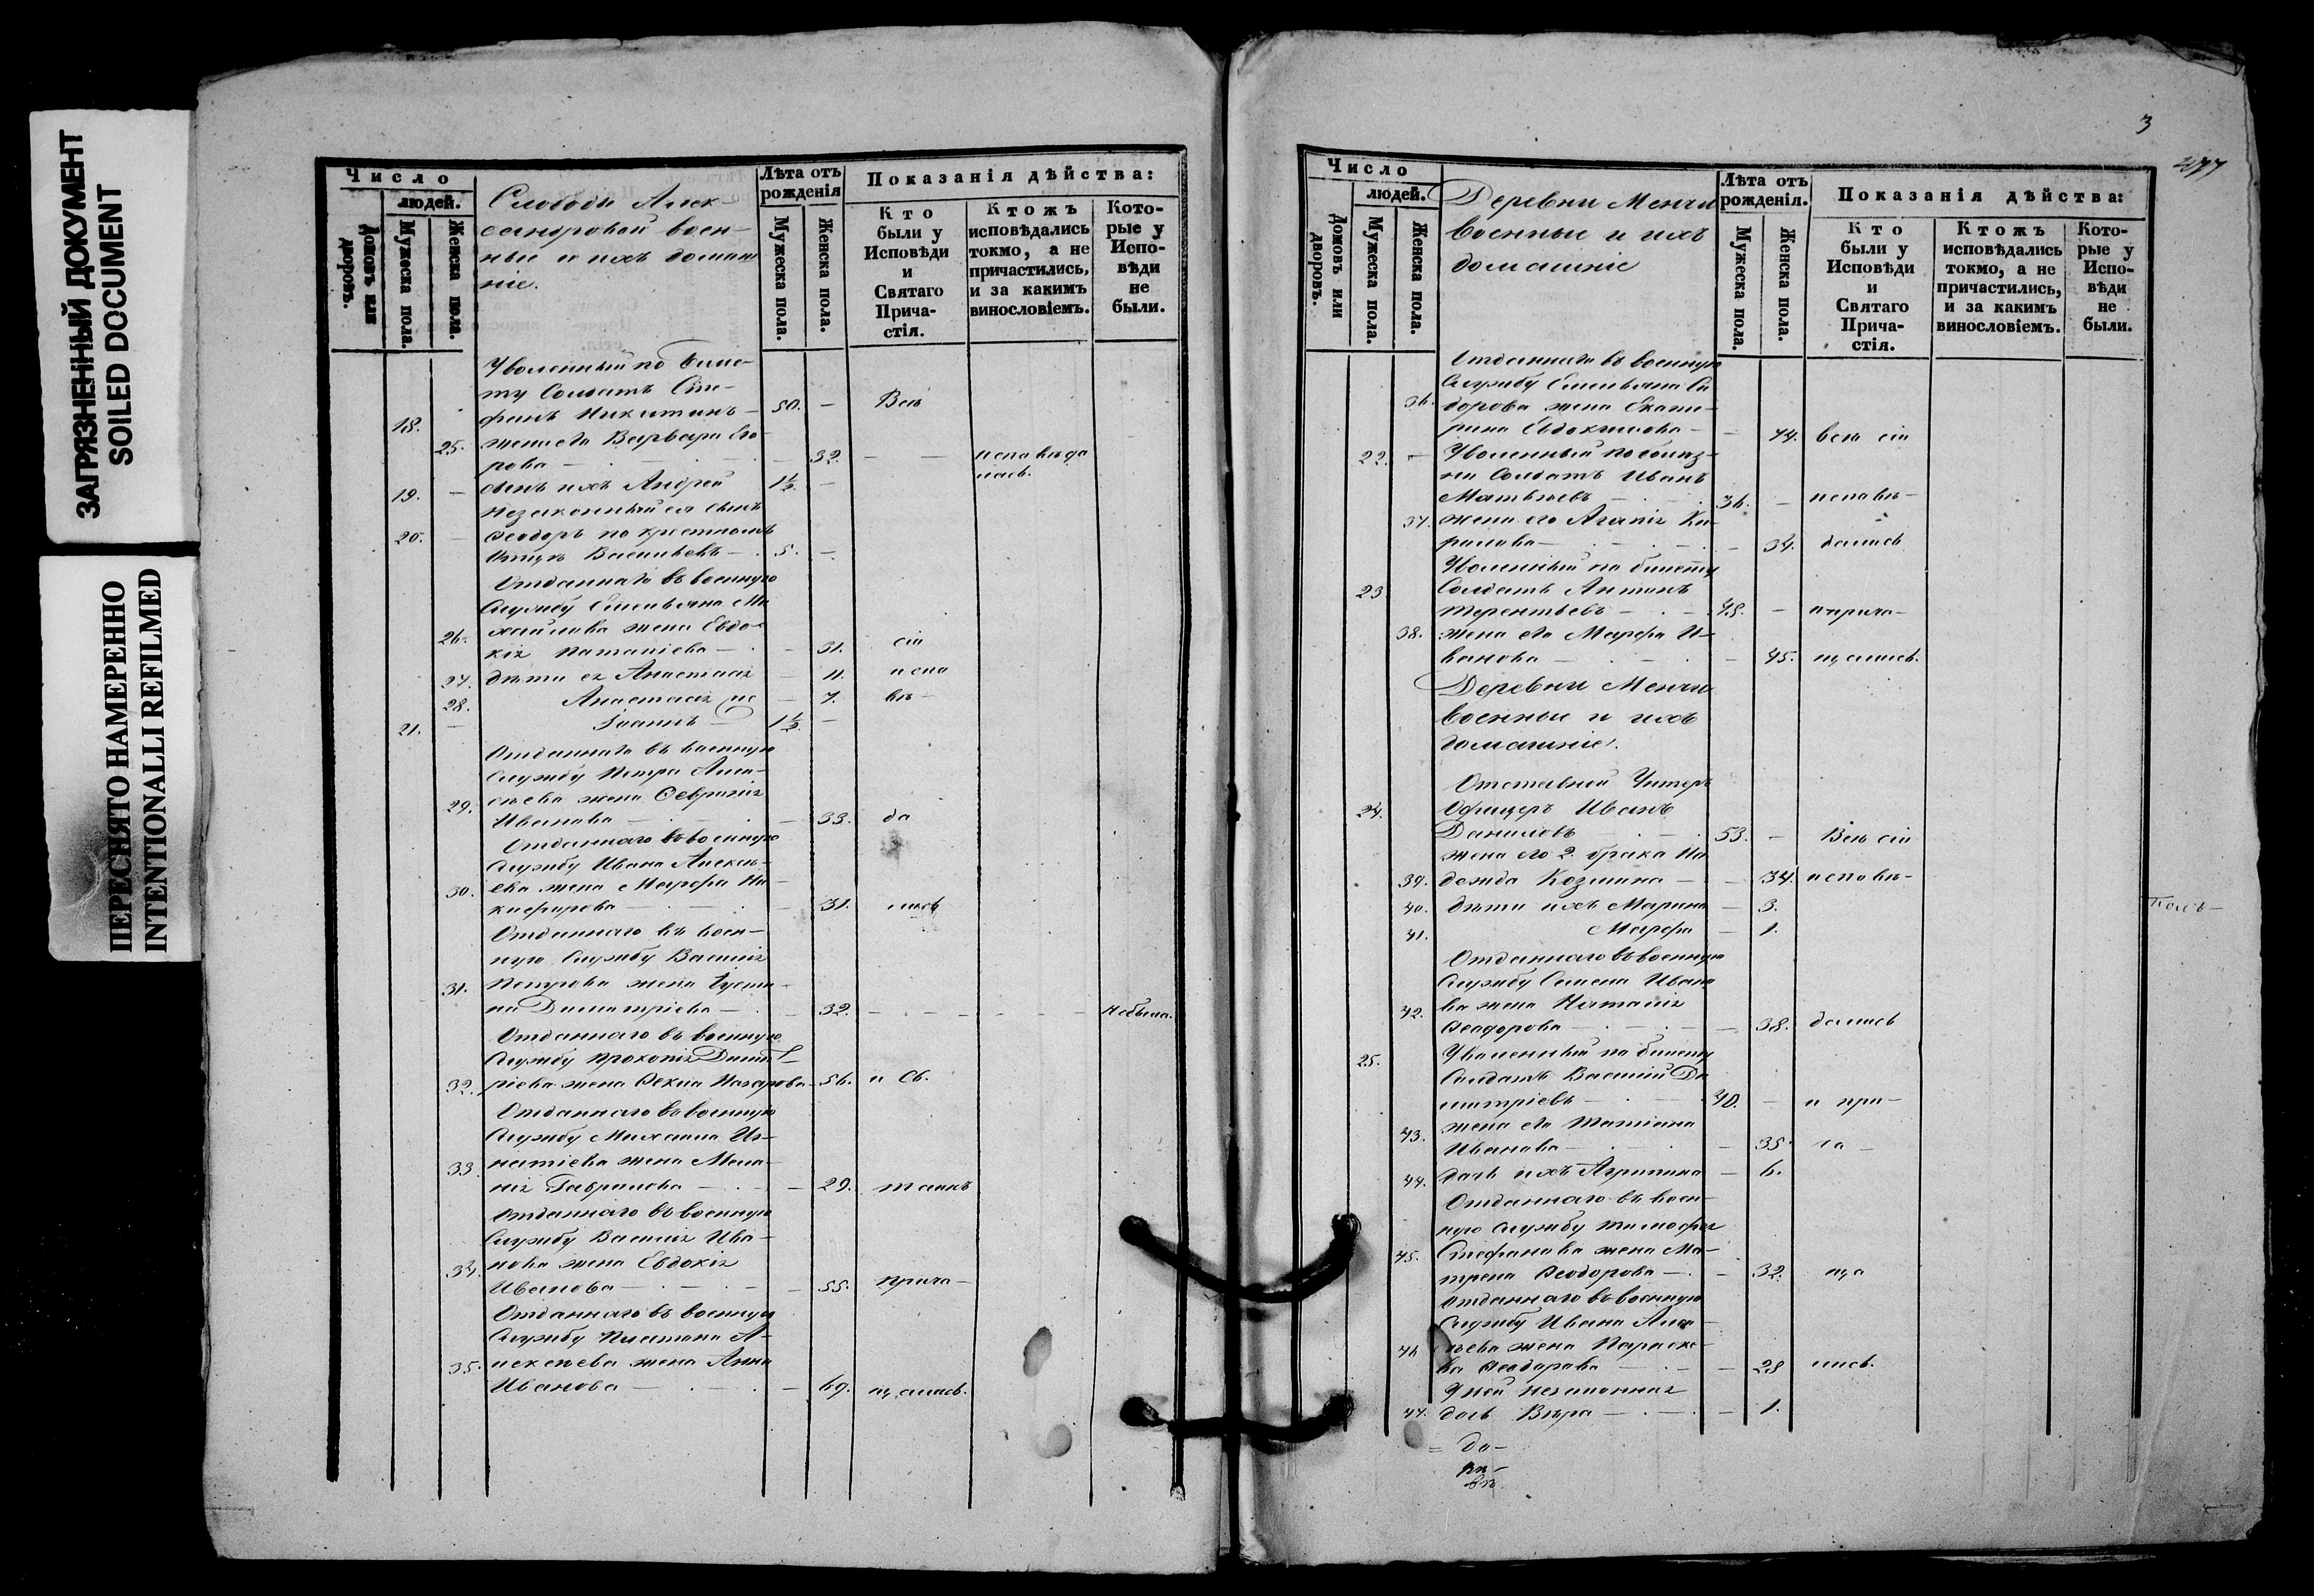 ЗАГРЯЗНЕННЫЙ ДОКУМЕНТ
SOILED DOCUMENT
ПЕРЕСНЯТО НАМЕРЕННО
INTENTIONALLI REFILMED
Число
людей.
Домовъ или дворовъ.
Мужеска пола.
Женска пола.
Слободы Алек-
сандровой воен-
ные и ихъ домаш
ніе.
Лѣта отъ рожденія
Мужеска пола.
Женска пола.
Показанія дѣйства:
Кто были у Исповѣди и Святаго Прича- стія.
Ктожъ исповѣдались токмо, а не причастились, и за какимъ винословіемъ.
Кото- рые у Испо- вѣди не были.
Уволенный по биле-
ту Солдатъ Сте-
18. фанъ Никитинъ — 50. — Всѣ
25. жена его Варвара Его-
рова — 32. — — исповѣда
лась.
19. — сынъ ихъ Андрей 1½. —
незаконный ея сынъ
20. — Ѳеодоръ по крестномъ
отцѣ Васильевъ — 5. —
Отданнаго въ военную
Службу Емельяна Ми
26. хайлова жена Евдо-
кія — 31. сіи
27. дѣти ея Анастасія — 11. испо
28. Анастасія — 7. вѣ-
21. — Іоаннъ — 1½. —
Отданнаго въ военную
Службу Петра Алек-
29. сѣева жена Февронія
Иванова — 33. да
Отданнаго въ военную
Службу Ивана Алексѣ-
30. ева жена Марфа Ни-
кифорова — 31. лись
Отданнаго въ воен-
ную Службу Василія
31. Петрова жена Іусти-
на Димитріева — 32. — — небыла.
Отданнаго въ военную
Службу Прокопія Димит
32. ріева жена Ѳекла Назарова — 56. и Св.
Отданнаго въ военную
Службу Михаила Иг-
33 натіева жена Мела-
нія Гаврилова — 29. таинъ
Отданнаго въ военную
Службу Василія Ива-
34. нова жена Евдокія
Иванова — 55. прича-
Отданнаго въ военную
Службу Платона А-
35. лексѣева жена Анна
Иванова — 69. щались.
3
Число
людей.
Домовъ или дворовъ.
Мужеска пола.
Женска пола.
Деревни Менчи
военные и ихъ
домашніе
Лѣта отъ рожденія.
Мужеска пола.
Женска пола.
Показанія дѣйства:
Кто были у Исповѣди и Святаго Прича- стія.
Ктожъ исповѣдались токмо, а не причастились, и за какимъ винословіемъ.
Кото- рые у Испо- вѣди не были.
Отданнаго въ военную
Службу Емельяна Си
36. дорова жена Екате-
рина Евдокимова — 44. всѣ сіи
22. — Уволенный по болѣз-
ни Солдатъ Иванъ
Матвѣевъ — 36. — исповѣ-
37. жена его Агапія Ки-
рилова — 34. дались
Уволенный по билету
23 Солдатъ Антонъ
Терентьевъ — 48. — и прича-
38. жена его Марфа И-
ванова — 45. щались.
Деревни Менчи
военные и ихъ
домашніе.
Отставный Унтеръ
24. Офицеръ Иванъ
Даниловъ — 53. — Всѣ сіи
жена его 2. брака На
39. дежда Козмина — 34. исповѣ-
40. дѣти ихъ Марина — 3.
41. Марфа — 1.
Отданнаго въ военную
Службу Семена Ивано
42. ва жена Наталія
Ѳеодорова — 38. дались
25. Уволенный по билету
Солдатъ Василій Ди
митріевъ — 40. — и при-
43. жена его Татіана
Иванова — 35. ча-
44. дочь ихъ Агрипина — 6.
Отданнаго въ воен-
ную Службу Тимофея
45. Стефанова жена Ма-
трена Ѳеодорова — 32. ща
Отданнаго въ военную
Службу Ивана Алек-
46 сѣева жена Параске-
ва Ѳеодорова — 28 лись.
У ней незаконная
47. дочь Вѣра — 1.